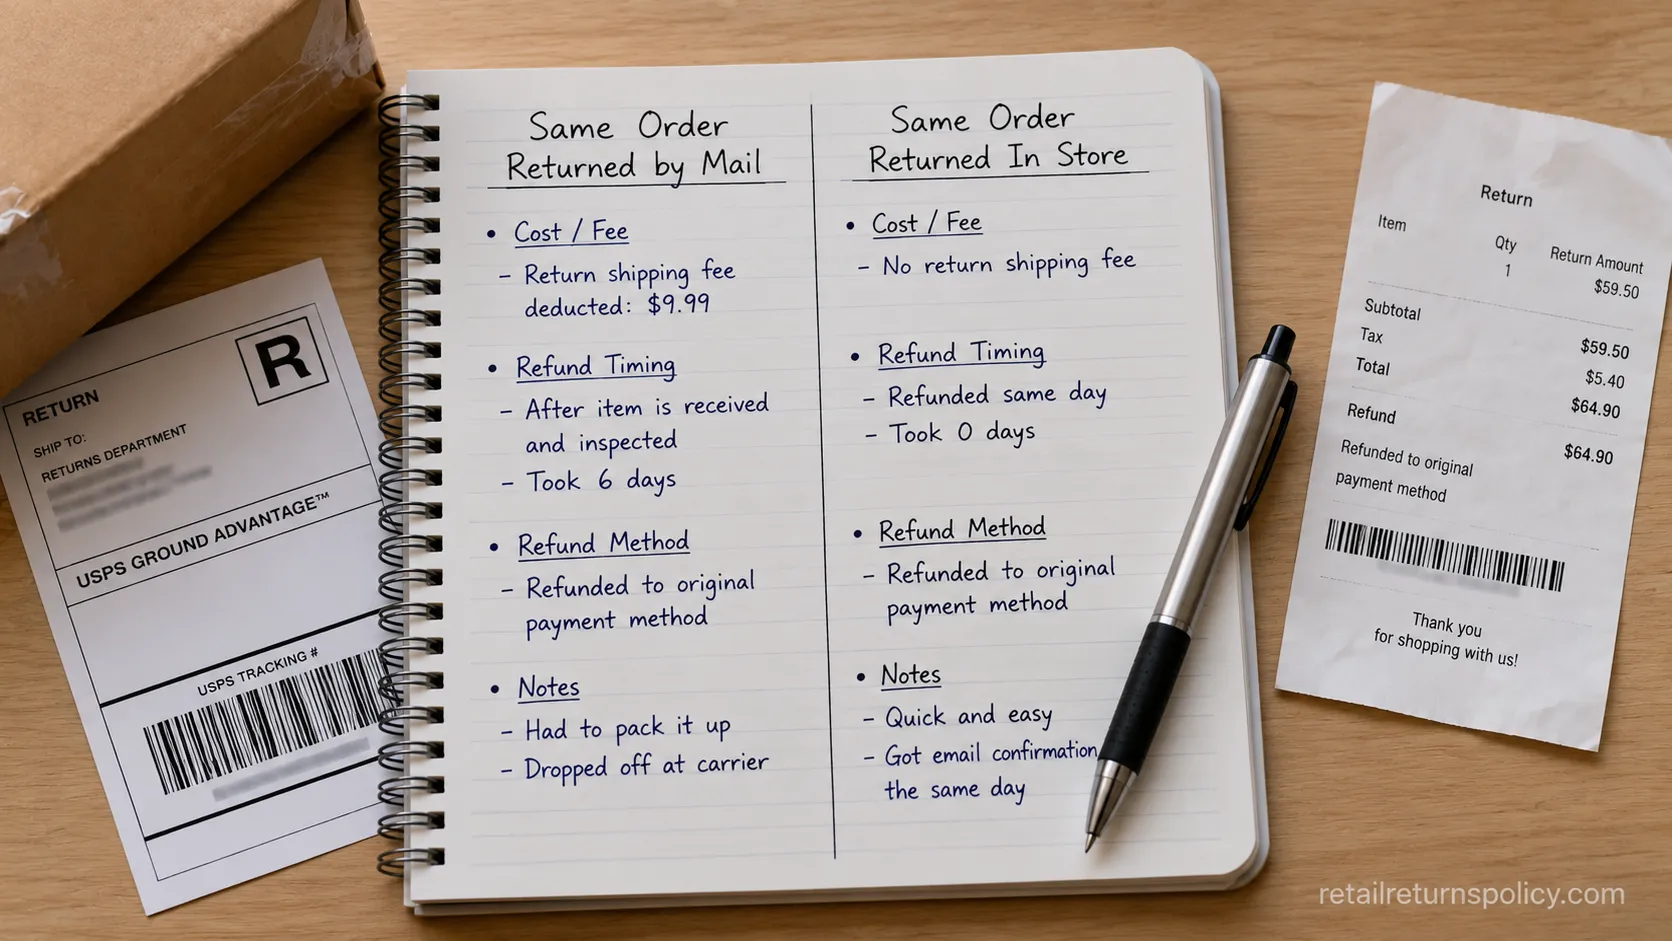 RETURN
R
SHIP TO:
RETURNS DEPARTMENT
USPS GROUND ADVANTAGE™
USPS TRACKING #
Same Order
Returned by Mail
• Cost / Fee
– Return shipping fee
deducted: $9.99
• Refund Timing
– After item is received
and inspected
– Took 6 days
• Refund Method
– Refunded to original
payment method
• Notes
– Had to pack it up
– Dropped off at carrier
Same Order
Returned In Store
• Cost / Fee
– No return shipping fee
• Refund Timing
– Refunded same day
– Took 0 days
• Refund Method
– Refunded to original
payment method
• Notes
– Quick and easy
– Got email confirmation
the same day
Return
Item Qty Return Amount
1 $59.50
Subtotal $59.50
Tax $5.40
Total $64.90
Refund $64.90
Refunded to original
payment method
Thank you
for shopping with us!
retailreturnspolicy.com